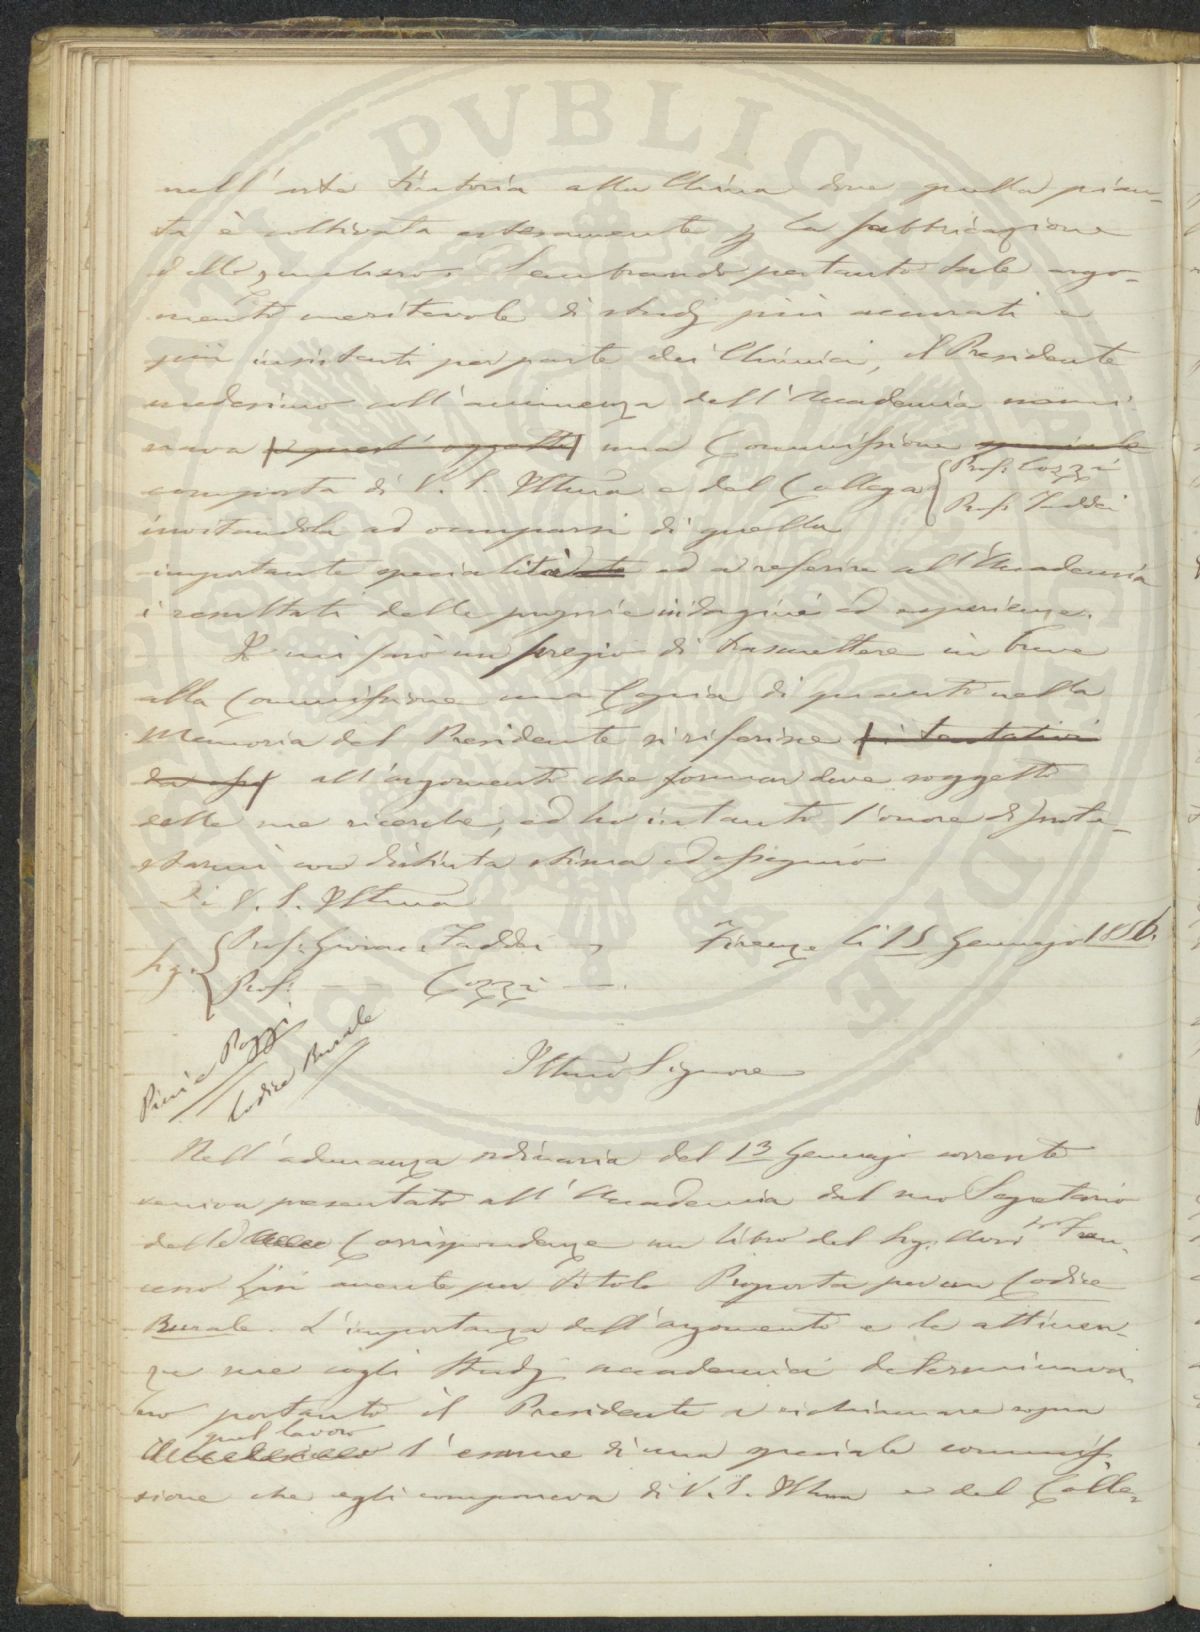 nell'arte tintoria alla China dove quella pian-
ta è coltivata estesamente p la fabbricazione
dello zucchero. Sembrando pertanto tale argo-
mento meritevole di studj più accurati e
più insistenti per parte dei Chimici, il Presidente
medesimo coll'annuenza dell'Accademia nomi-
nava a quest'oggetto una Commissione speciale
composta di V. S. Illma e del Collega { Prof. Cozzi
Prof. Taddei
invitandola ad occuparsi di quella
importante specialità ed a referire all'Accademia
i resultati delle proprie indagini ed esperienze.
Io mi farò un pregio di trasmettere in breve
alla Commissione una Copia di quanto nella
Memoria del Presidente si riferisce ai tentativi
all'argomento che formar deve soggetto
delle sue ricerche, ed ho intanto l'onore di prote-
starmi con distinta stima ed ossequio
Di V. S. Illma
Sigi. { Prof. Giovac. Taddei Firenze li 15 Gennajo 1856.
Prof. — Cozzi —
Pini e Poggi
Codice Rurale
Illmo Signore
Nell'adunanza ordinaria del 13 Gennajo corrente
veniva presentato all'Accademia dal suo Segretario
delle Corrispondenze un libro del Sig. Avv. Fran-
cesco avente per titolo Proposta per un Codice
Rurale. L'importanza dell'argomento e le attinen-
ze sue cogli Studj accademici determinava-
no pertanto il Presidente a richiamare sopra
quel lavoro l'esame di una speciale commis-
sione che egli componeva di V. S. Illma e del Colle-
PVBLICAE